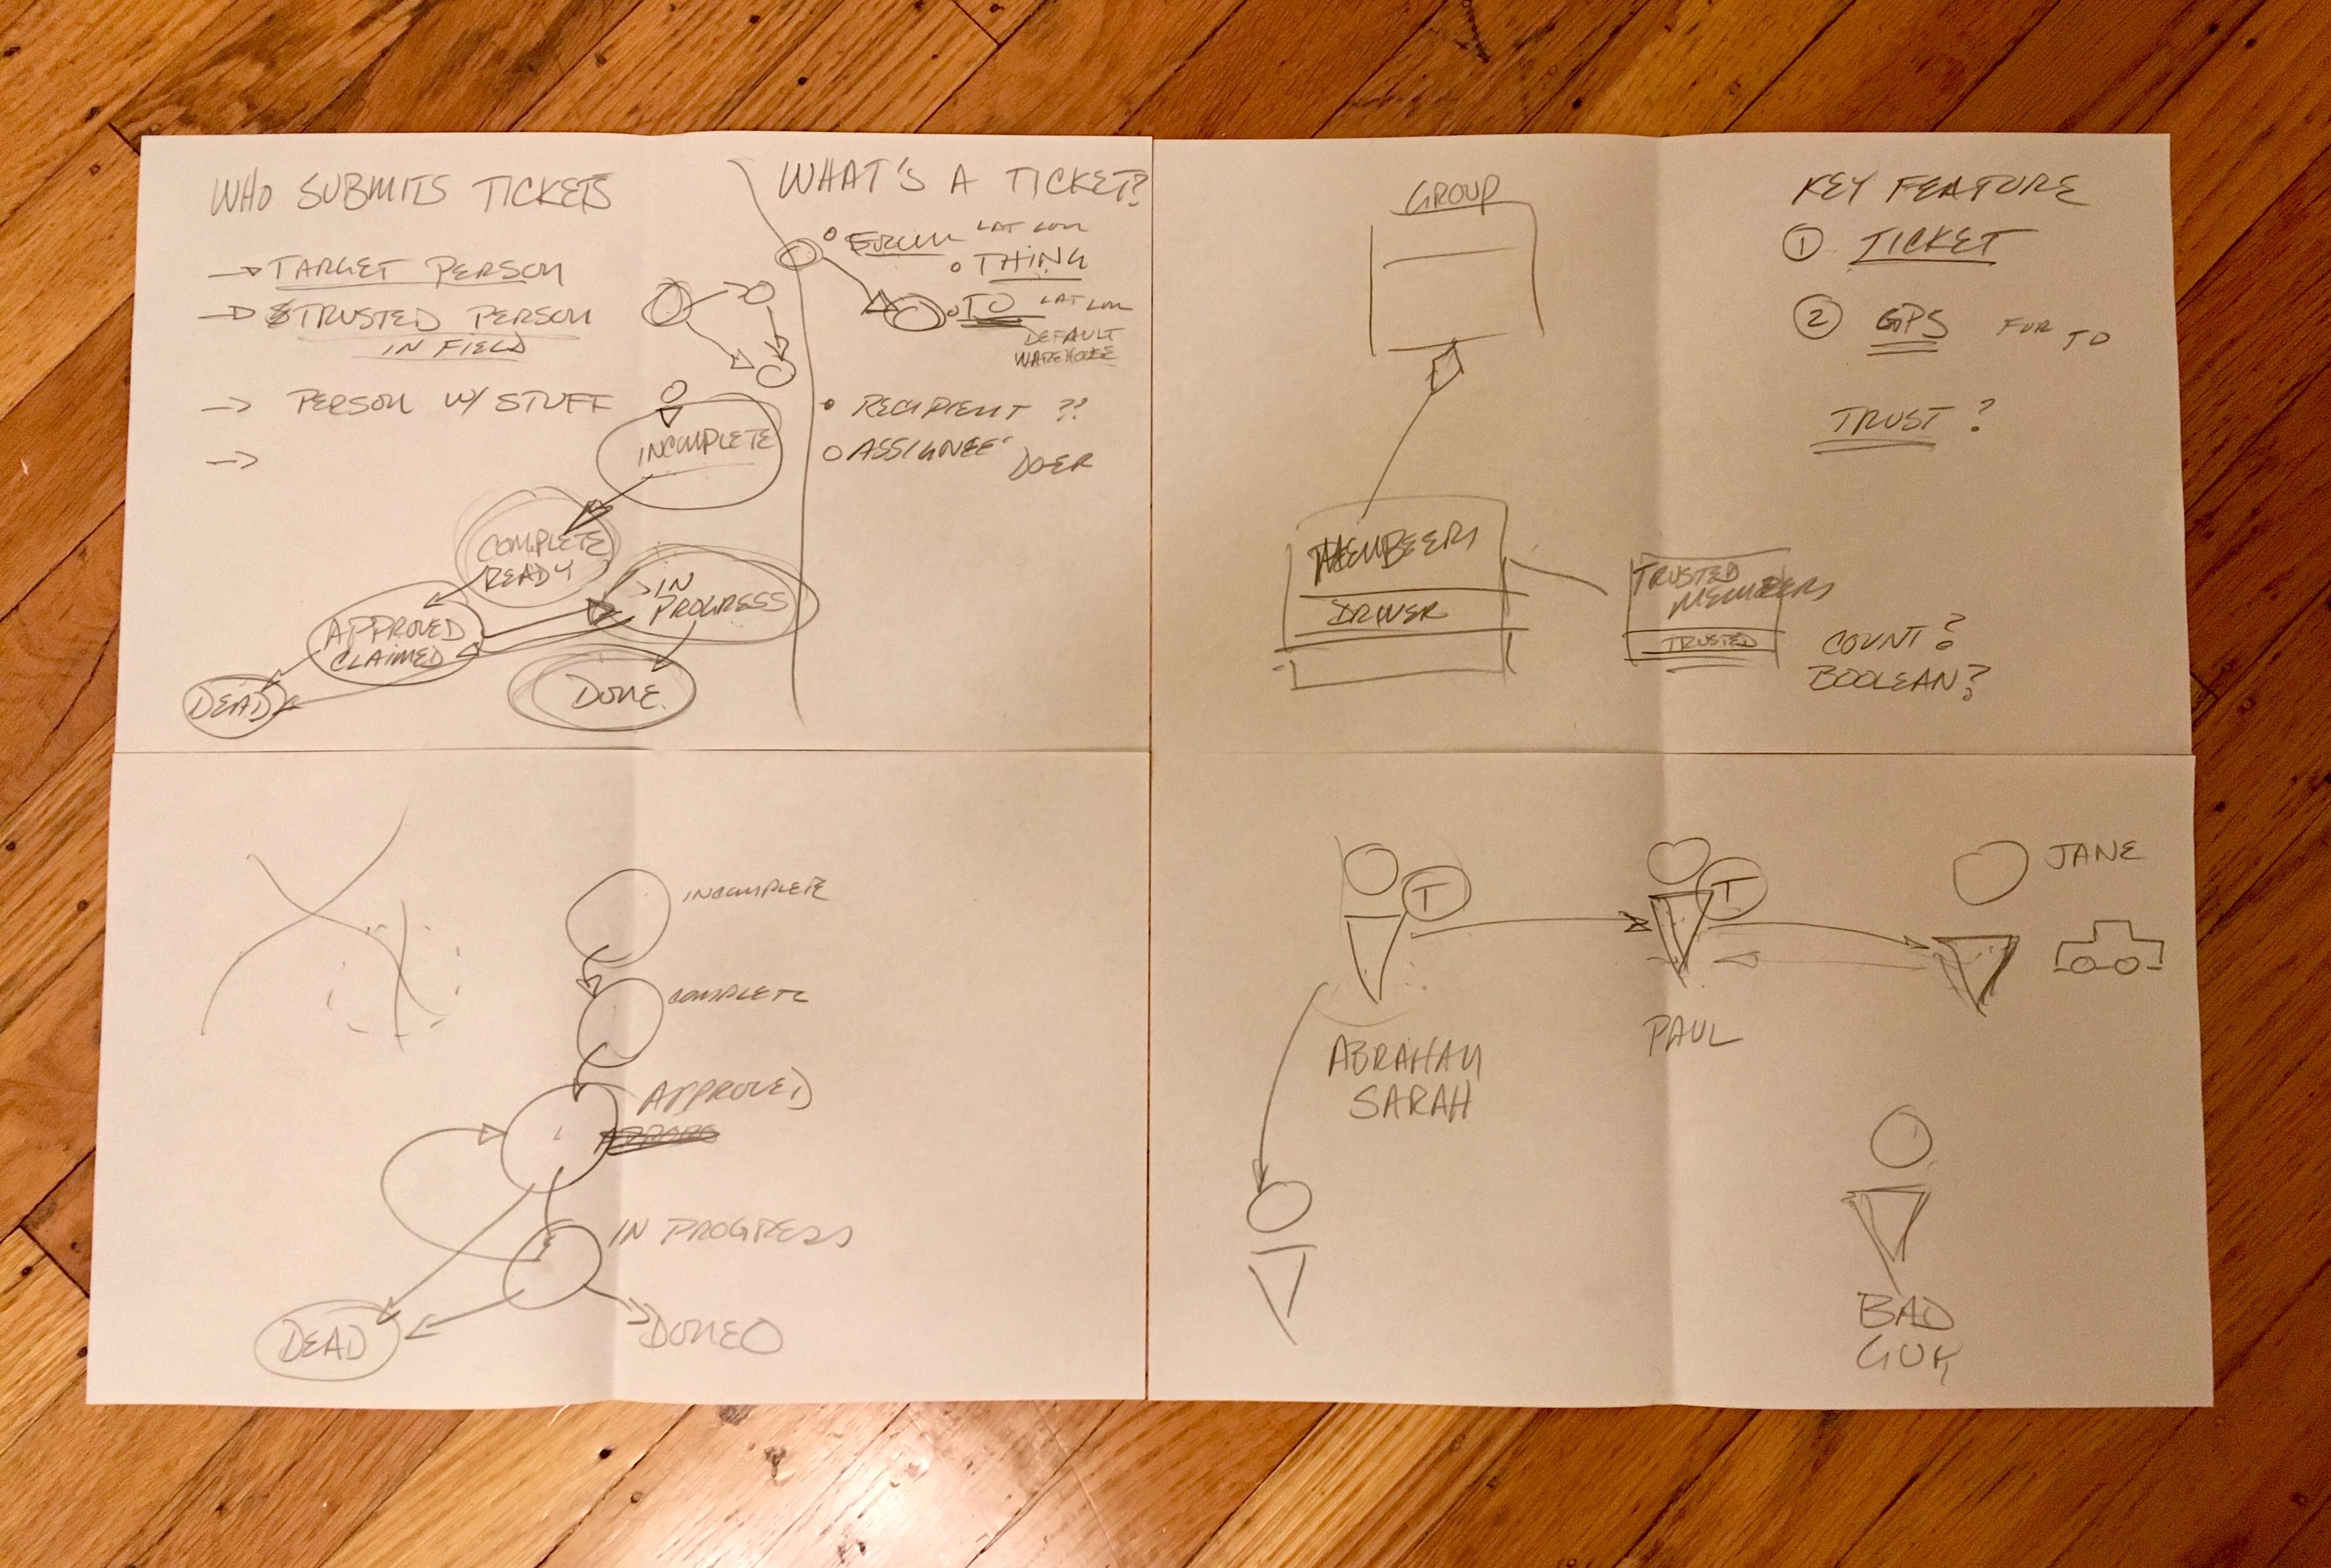 WHO SUBMITS TICKETS
→ TARGET PERSON
→ TRUSTED PERSON
IN FIELD
→ PERSON W/ STUFF
→
INCOMPLETE
COMPLETE
READY
> IN
PROGRESS
APPROVED
CLAIMED
DEAD
DONE
WHAT'S A TICKET?
LAT LON
THING
TO LAT LON
DEFAULT
WAREHOUSE
RECIPIENT ??
ASSIGNEE
DOER
GROUP
MEMBEERS
DRIVER
TRUSTED
MEMBERS
TRUSTED
COUNT?
BOOLEAN?
KEY FEATURE
① TICKET
② GPS FOR TO
TRUST?
INCOMPLETE
COMPLETE
APPROVED
IN PROGRESS
DEAD
DONE
T
T
JANE
ABRAHAM
SARAH
PAUL
BAD
GUY